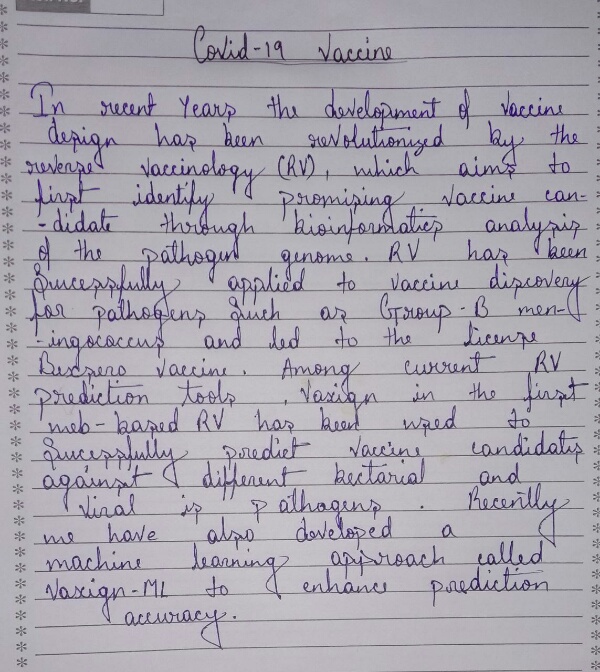 Covid-19 Vaccine
In recent Years the development of vaccine
design has been revolutionized by the
reverse vaccinology (RV), which aims to
first identify promising vaccine can-
-didate through bioinformatics analysis
of the pathogen genome. RV has been
Successfully applied to vaccine discovery
for pathogens such as Group-B men-
-ingococcus and led to the license
Bexsero vaccine. Among current RV
prediction tools, Vaxign in the first
web-based RV has been used to
Successfully predict vaccine candidates
against different bectarial and
Viral is pathogens. Recently
we have also developed a
machine learning approach called
Vaxign-ML to enhance prediction
accuracy.